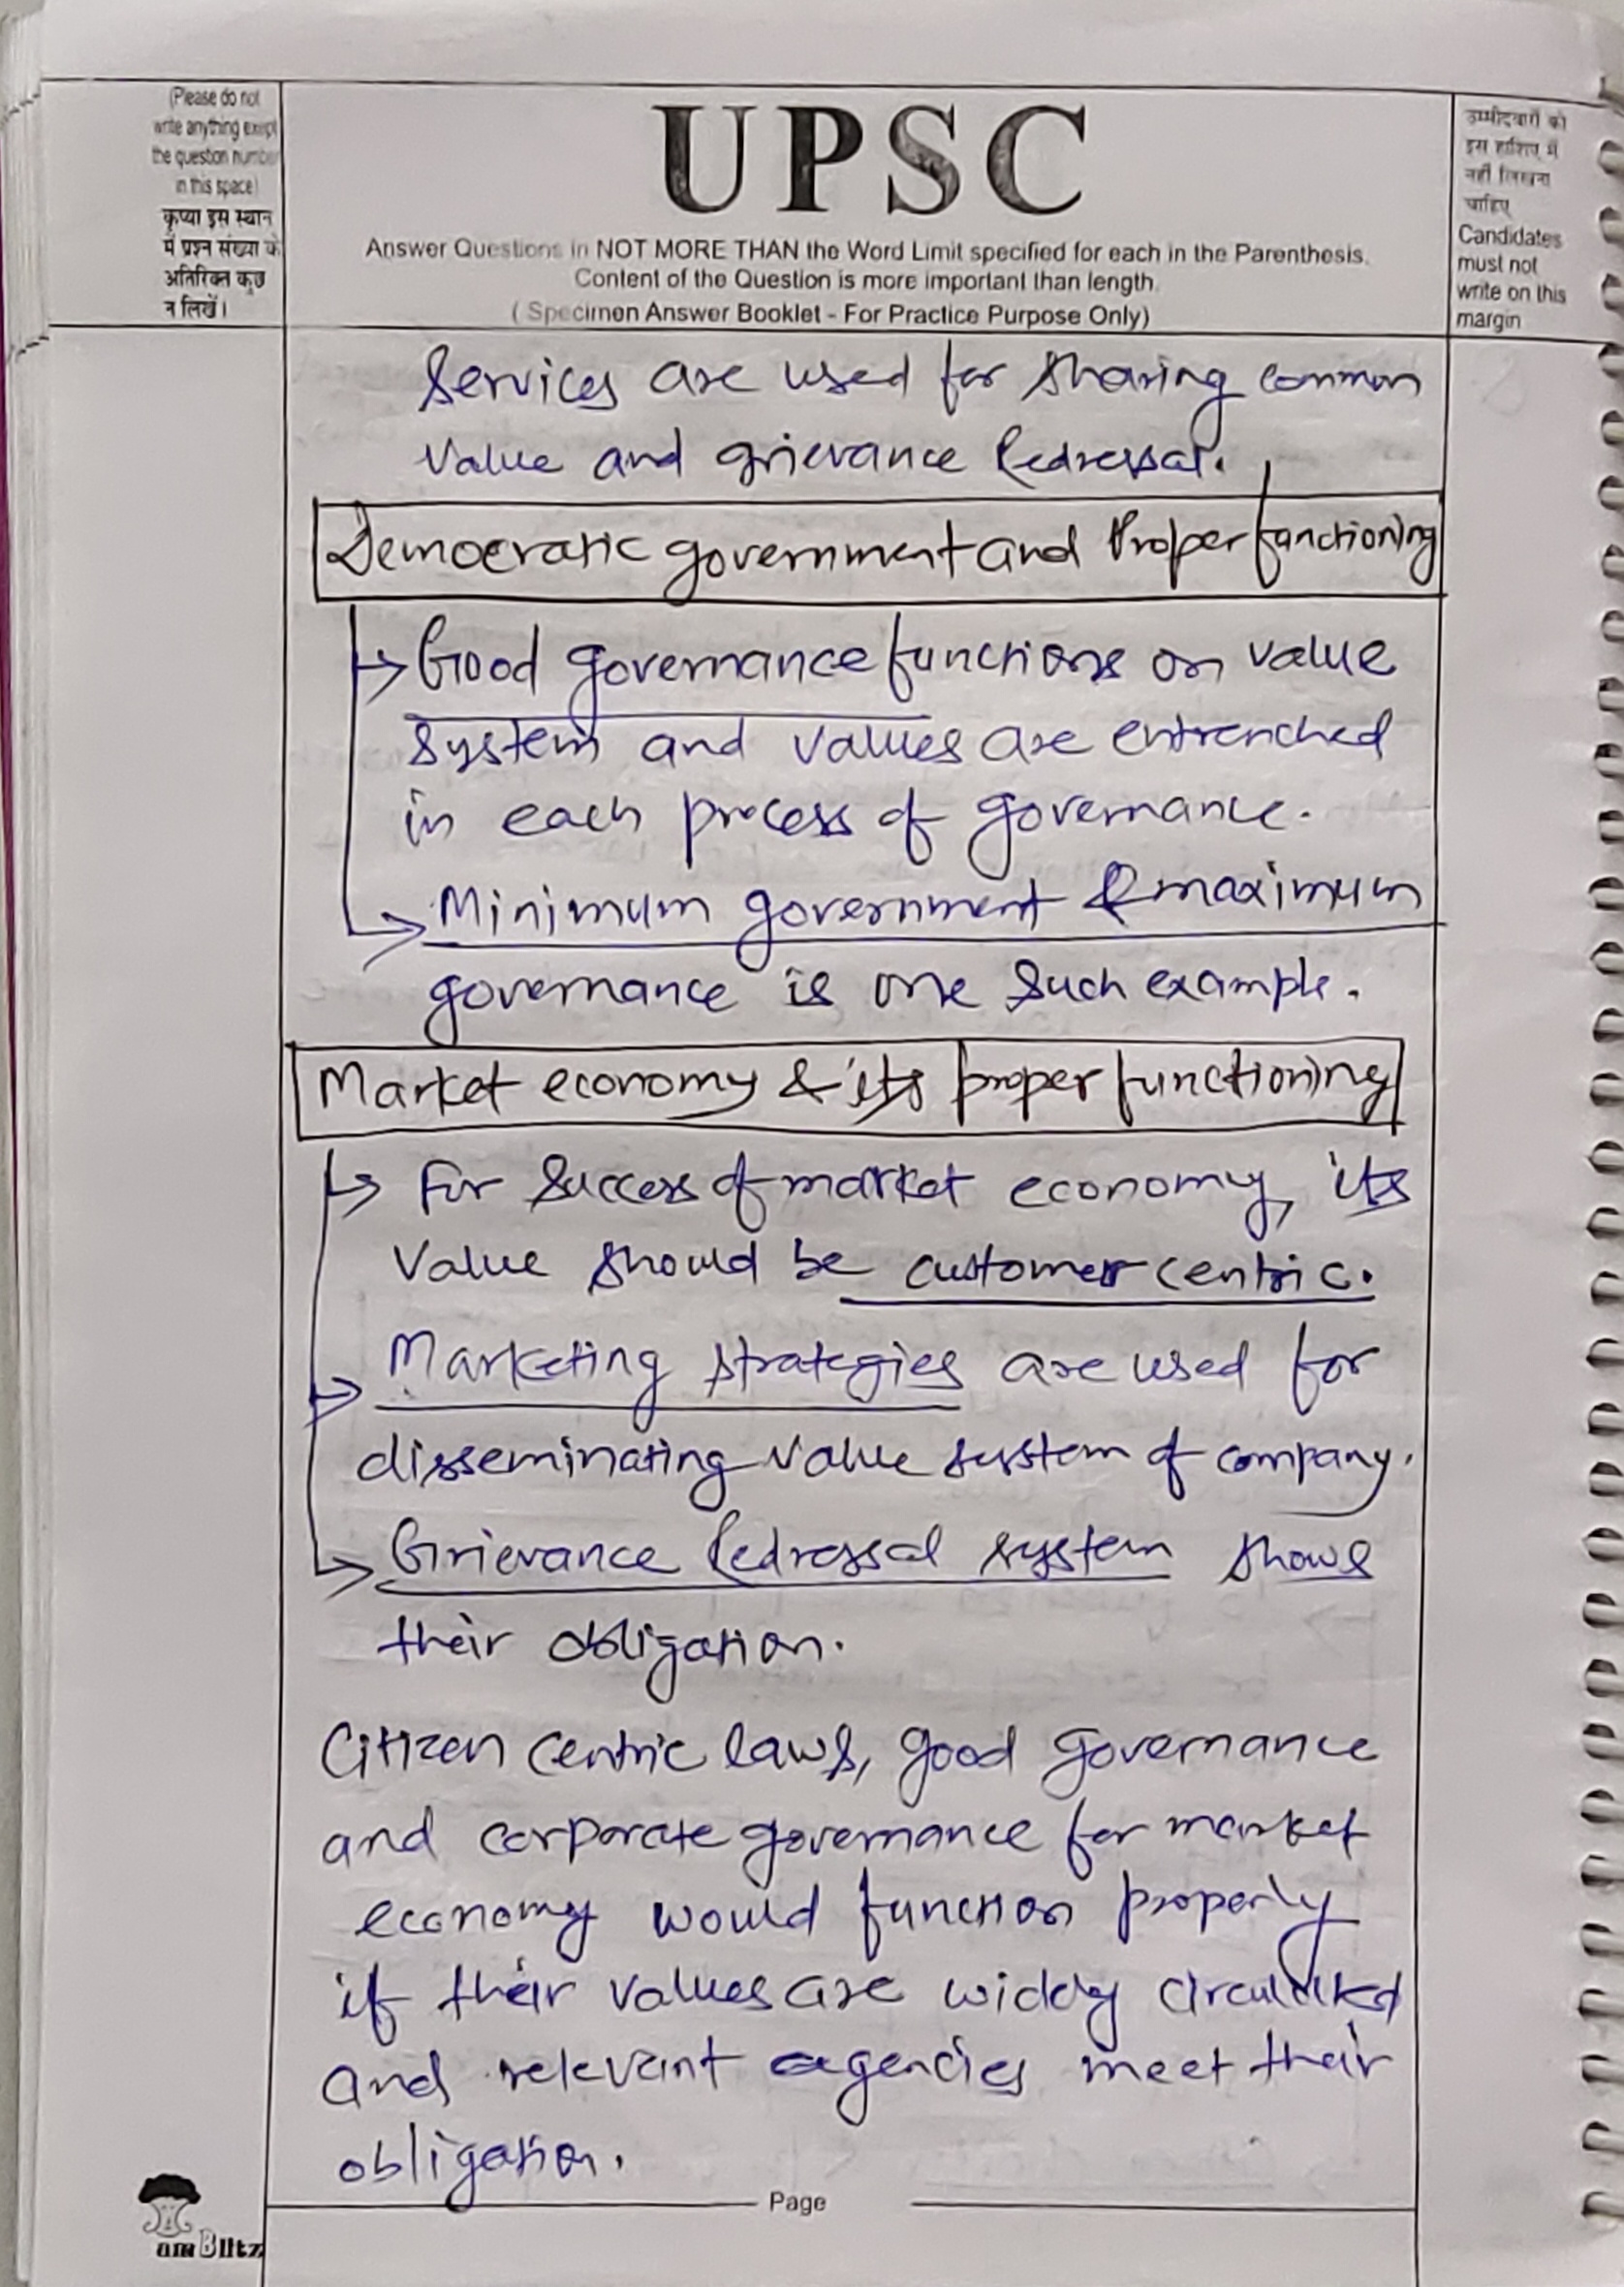 (Please do not
write anything except
the question number
in this space)
कृप्या इस स्थान
में प्रश्न संख्या के
अतिरिक्त कुछ
न लिखें।
UPSC
Answer Questions in NOT MORE THAN the Word Limit specified for each in the Parenthesis.
Content of the Question is more important than length.
( Specimen Answer Booklet - For Practice Purpose Only)
उम्मीदवारों को
इस हाशिए में
नहीं लिखना
चाहिए
Candidates
must not
write on this
margin
Services are used for sharing common
value and grievance Redressal.
Democratic government and Proper functioning
→ Good governance functions on value
system and values are entrenched
in each process of governance.
→ Minimum government & maximum
governance is one such example.
Market economy & its proper functioning
→ For success of market economy, its
value should be customer centric.
→ Marketing strategies are used for
disseminating value system of company.
→ Grievance Redressal system shows
their obligation.
Citizen centric laws, good governance
and corporate governance for market
economy would function properly
if their values are widely circulated
and relevant agencies meet their
obligation.
Page
am Blitz